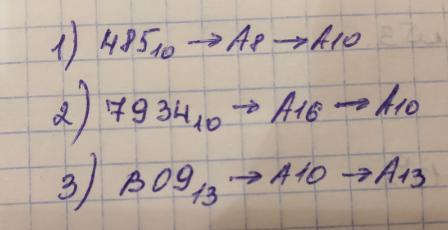 1) 485₁₀ → A8 → A10
2) 7934₁₀ → A16 → A10
3) B09₁₃ → A10 → A13